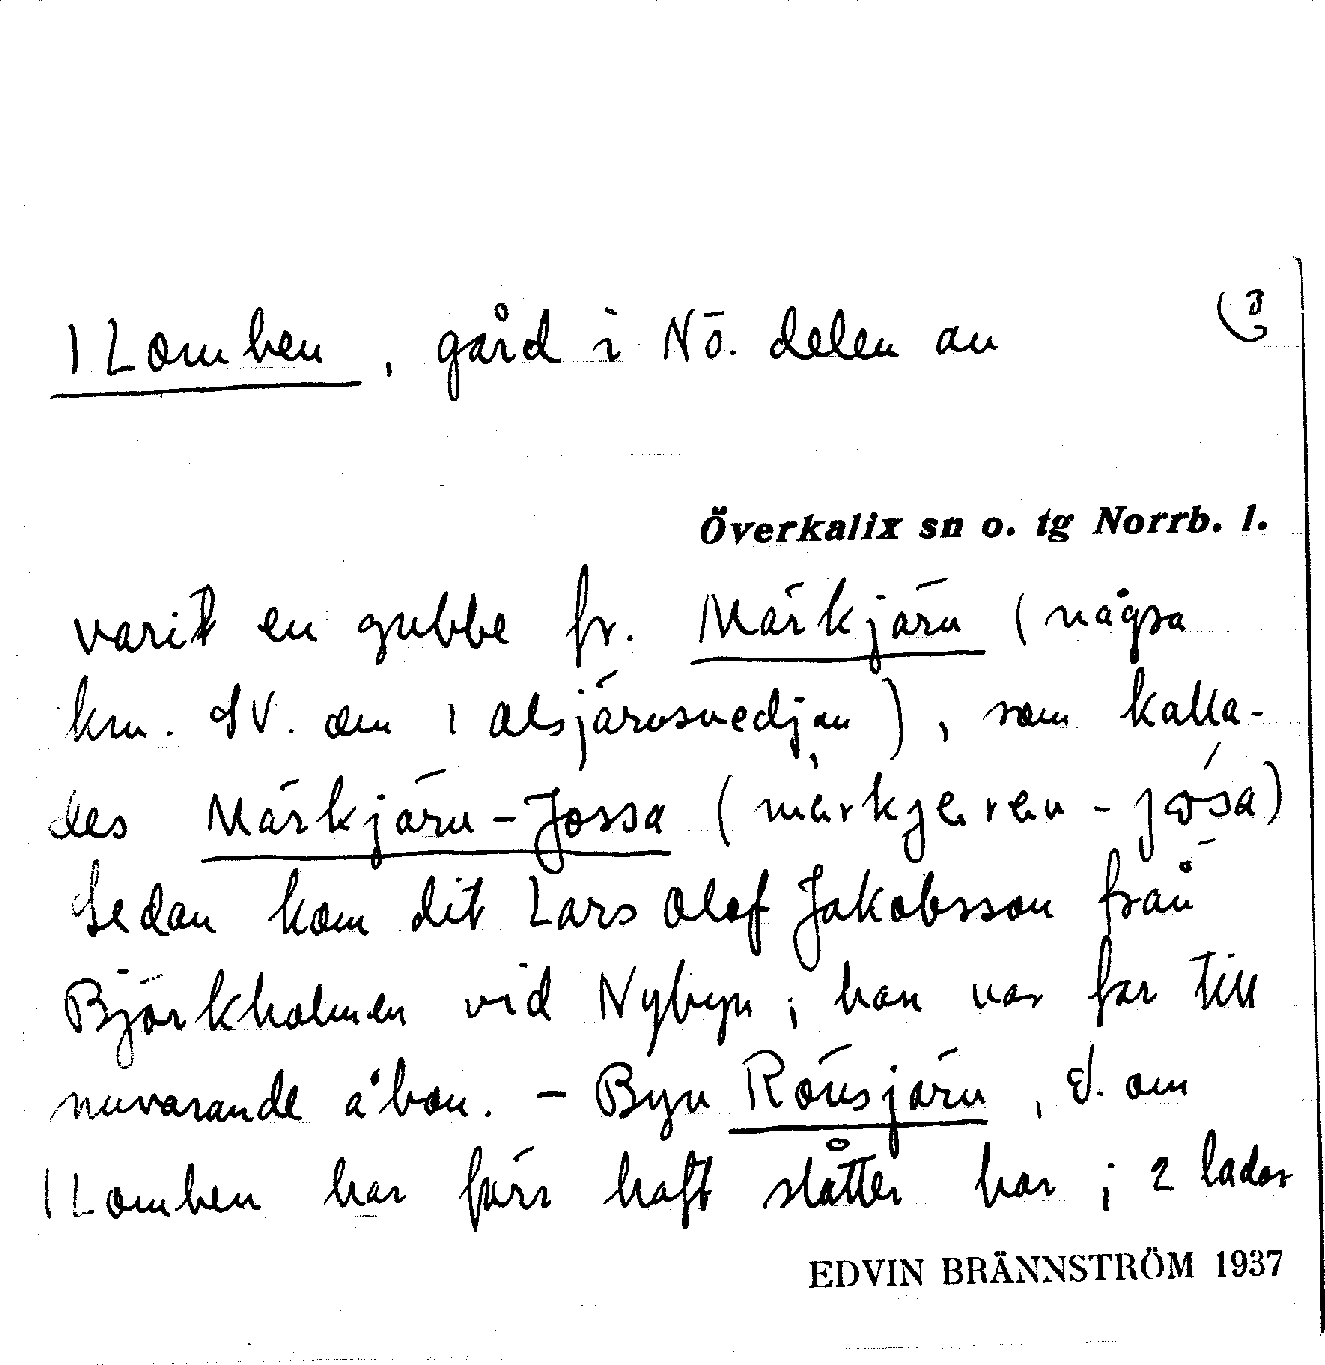 1 Lomben, gård i NÖ. delen av
(3
Överkalix sn o. tg Norrb. l.
varit en gubbe fr. Märkjärv (några
km. SV. om 1 Alsjärvsvedjan), som kalla-
des Märkjärv-Jossa
Sedan kom dit Lars Olof Jakobsson från
Björkholmen vid Nybyn; han var far till
nuvarande åbon. – Byn Rönsjärv, S. om
1 Lomben har förr haft slåtter här; 2 lador
EDVIN BRÄNNSTRÖM 1937